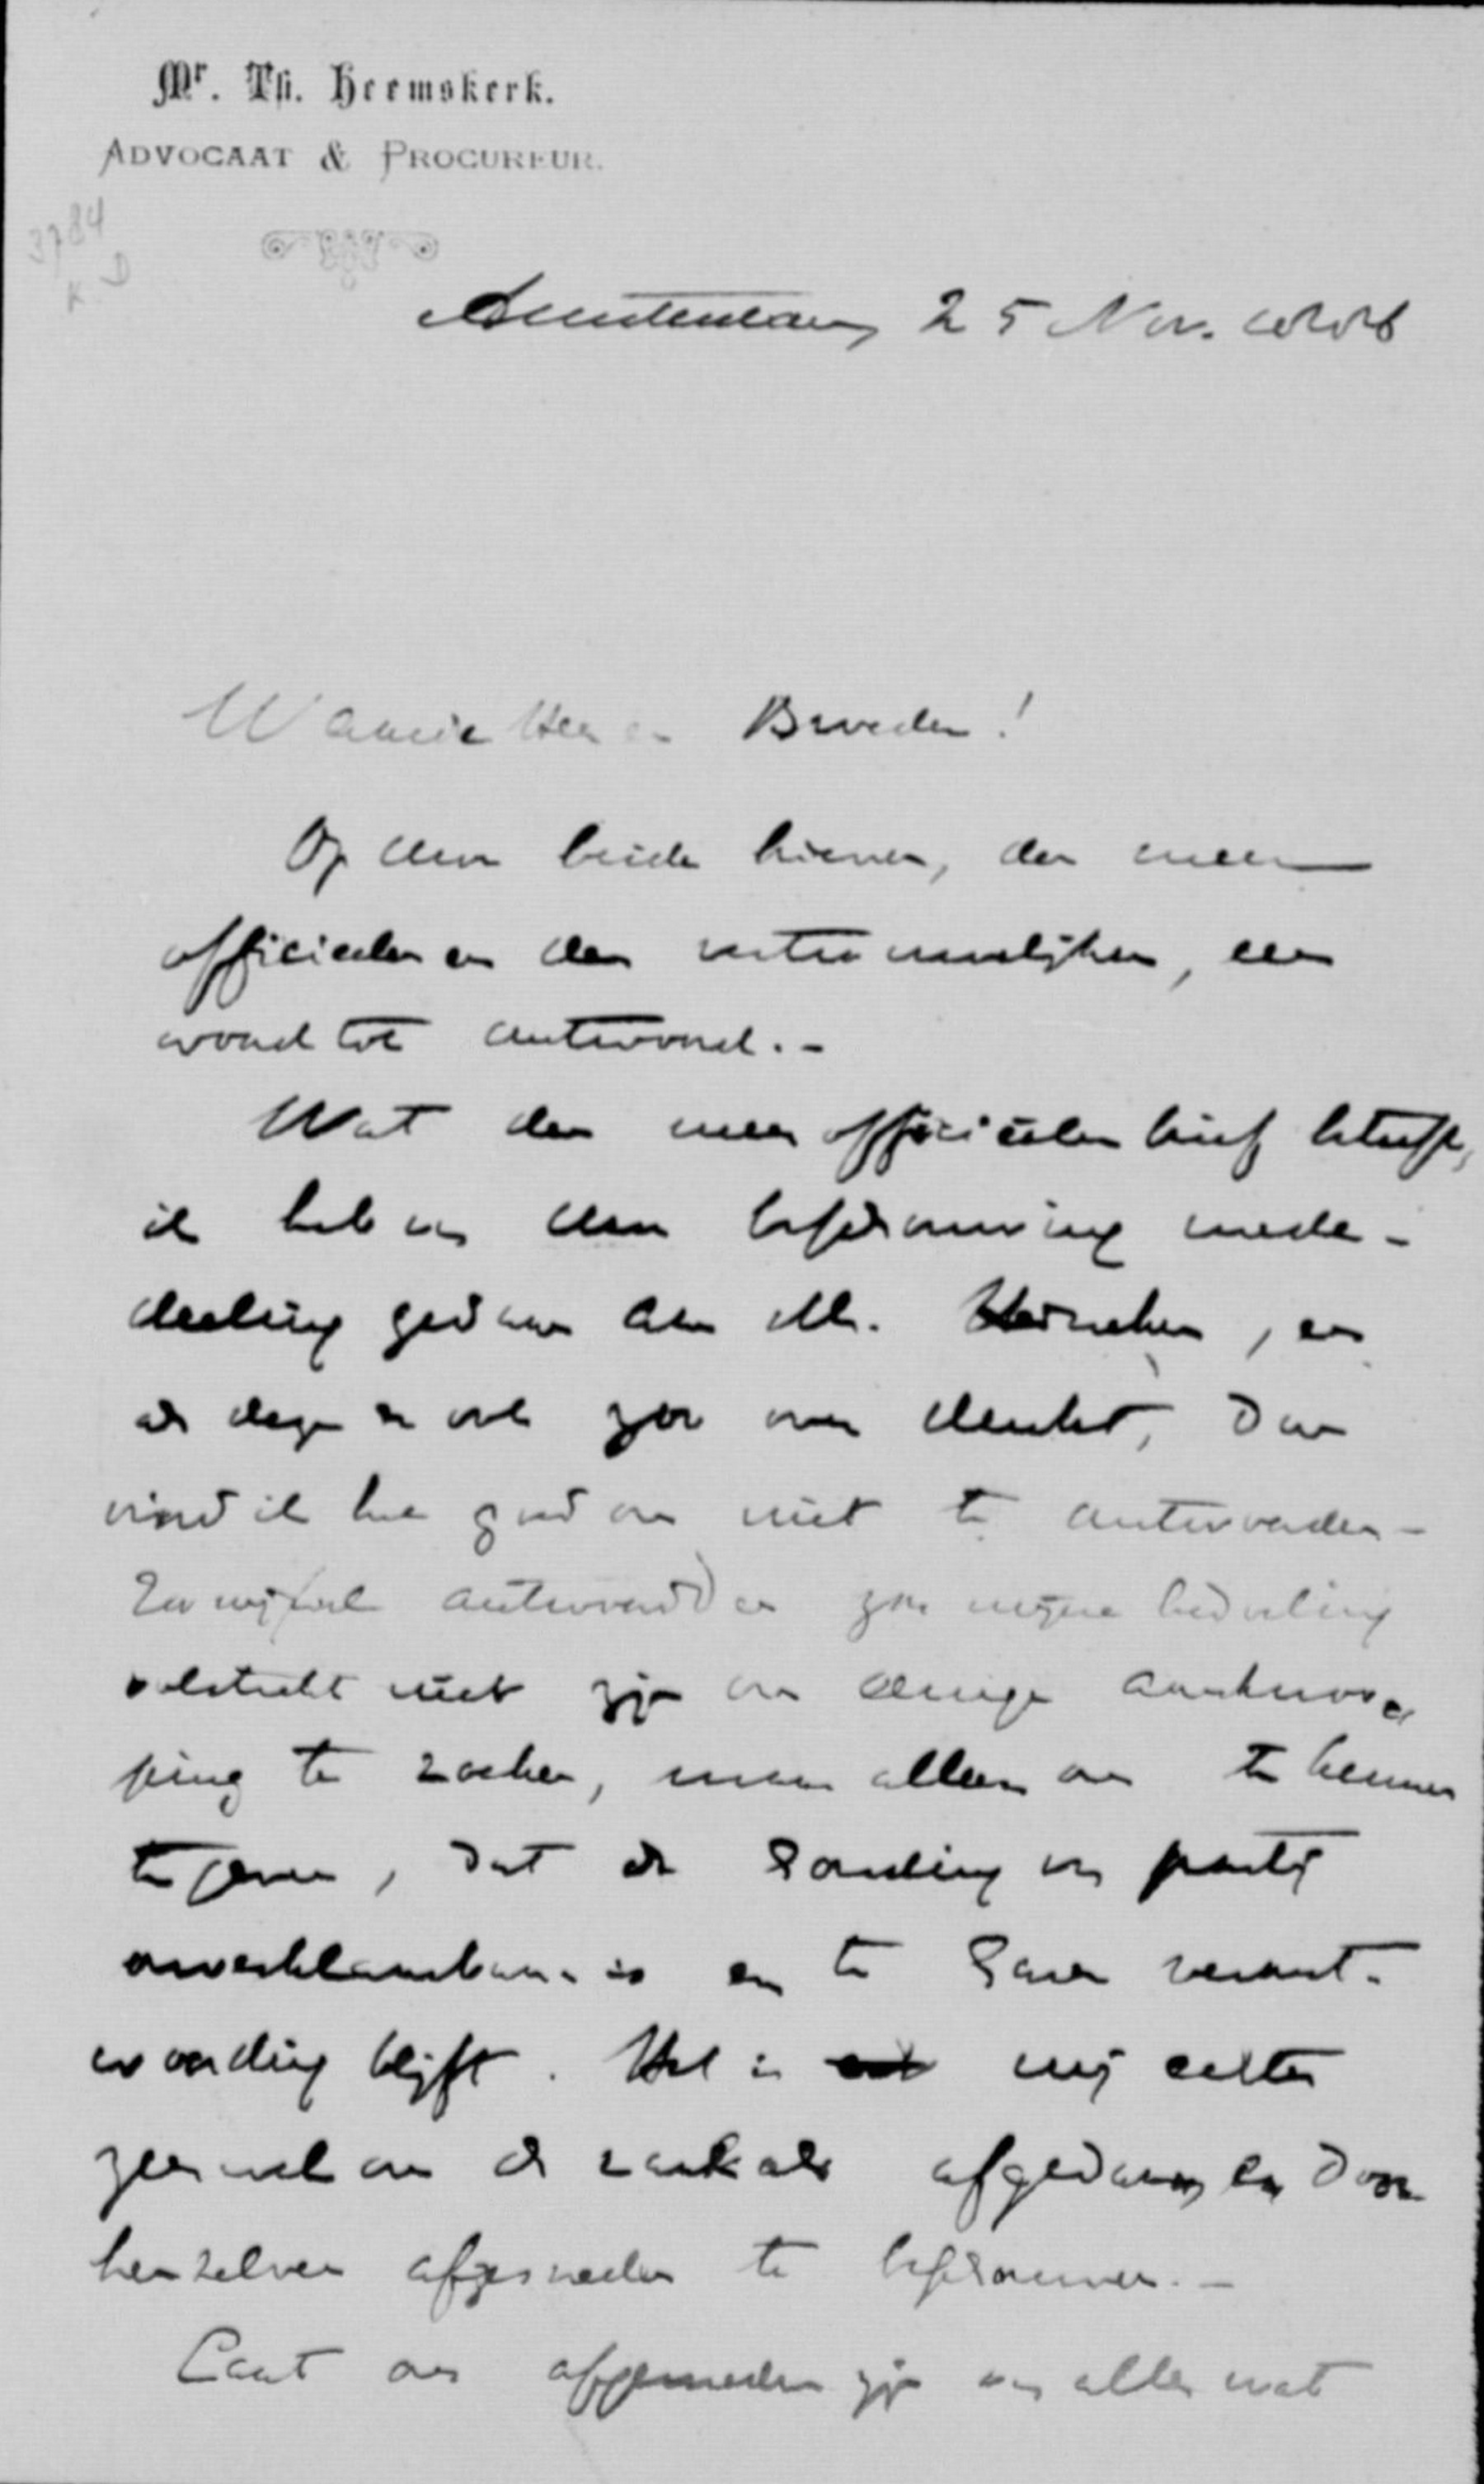 Mr. Th. Heemskerk.
ADVOCAAT & PROCUREUR.
3784
K. D
Amsterdam 25 Nov.
Waarde Heer en Broeder!
Op Uwe beide brieven, den meer
officieelen en den vertrouwelijken, een
woord tot antwoord. -
Wat den meer officieelen brief betreft,
ik heb van Uwe beschouwing mede-
deeling gedaan aan Mr.
als deze er ook zoo over denkt, dan
vind ik het goed om niet te antwoorden -
antwoordden zou mijne bedoeling
volstrekt niet zijn om eenige aanknoo
ping te zoeken, maar alleen om te kennen
te geven, dat de handeling van partij
onverklaarbaar is en te haren verant-
woording blijft. Het is mij echter
zeer wel om de zaak als afgedaan en door
henzelven afgesneden te beschouwen. -
Laat ons afgesneden zijn van alles wat